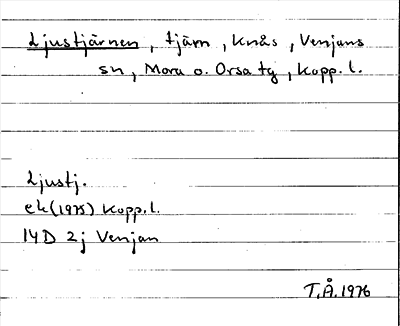 Ljustjärnen, tjärn, Knås, Venjans
sn, Mora o. Orsa tg, Kopp. l.
Ljustj.
ek (1975) Kopp. l.
14D 2j Venjan
T.Å. 1976